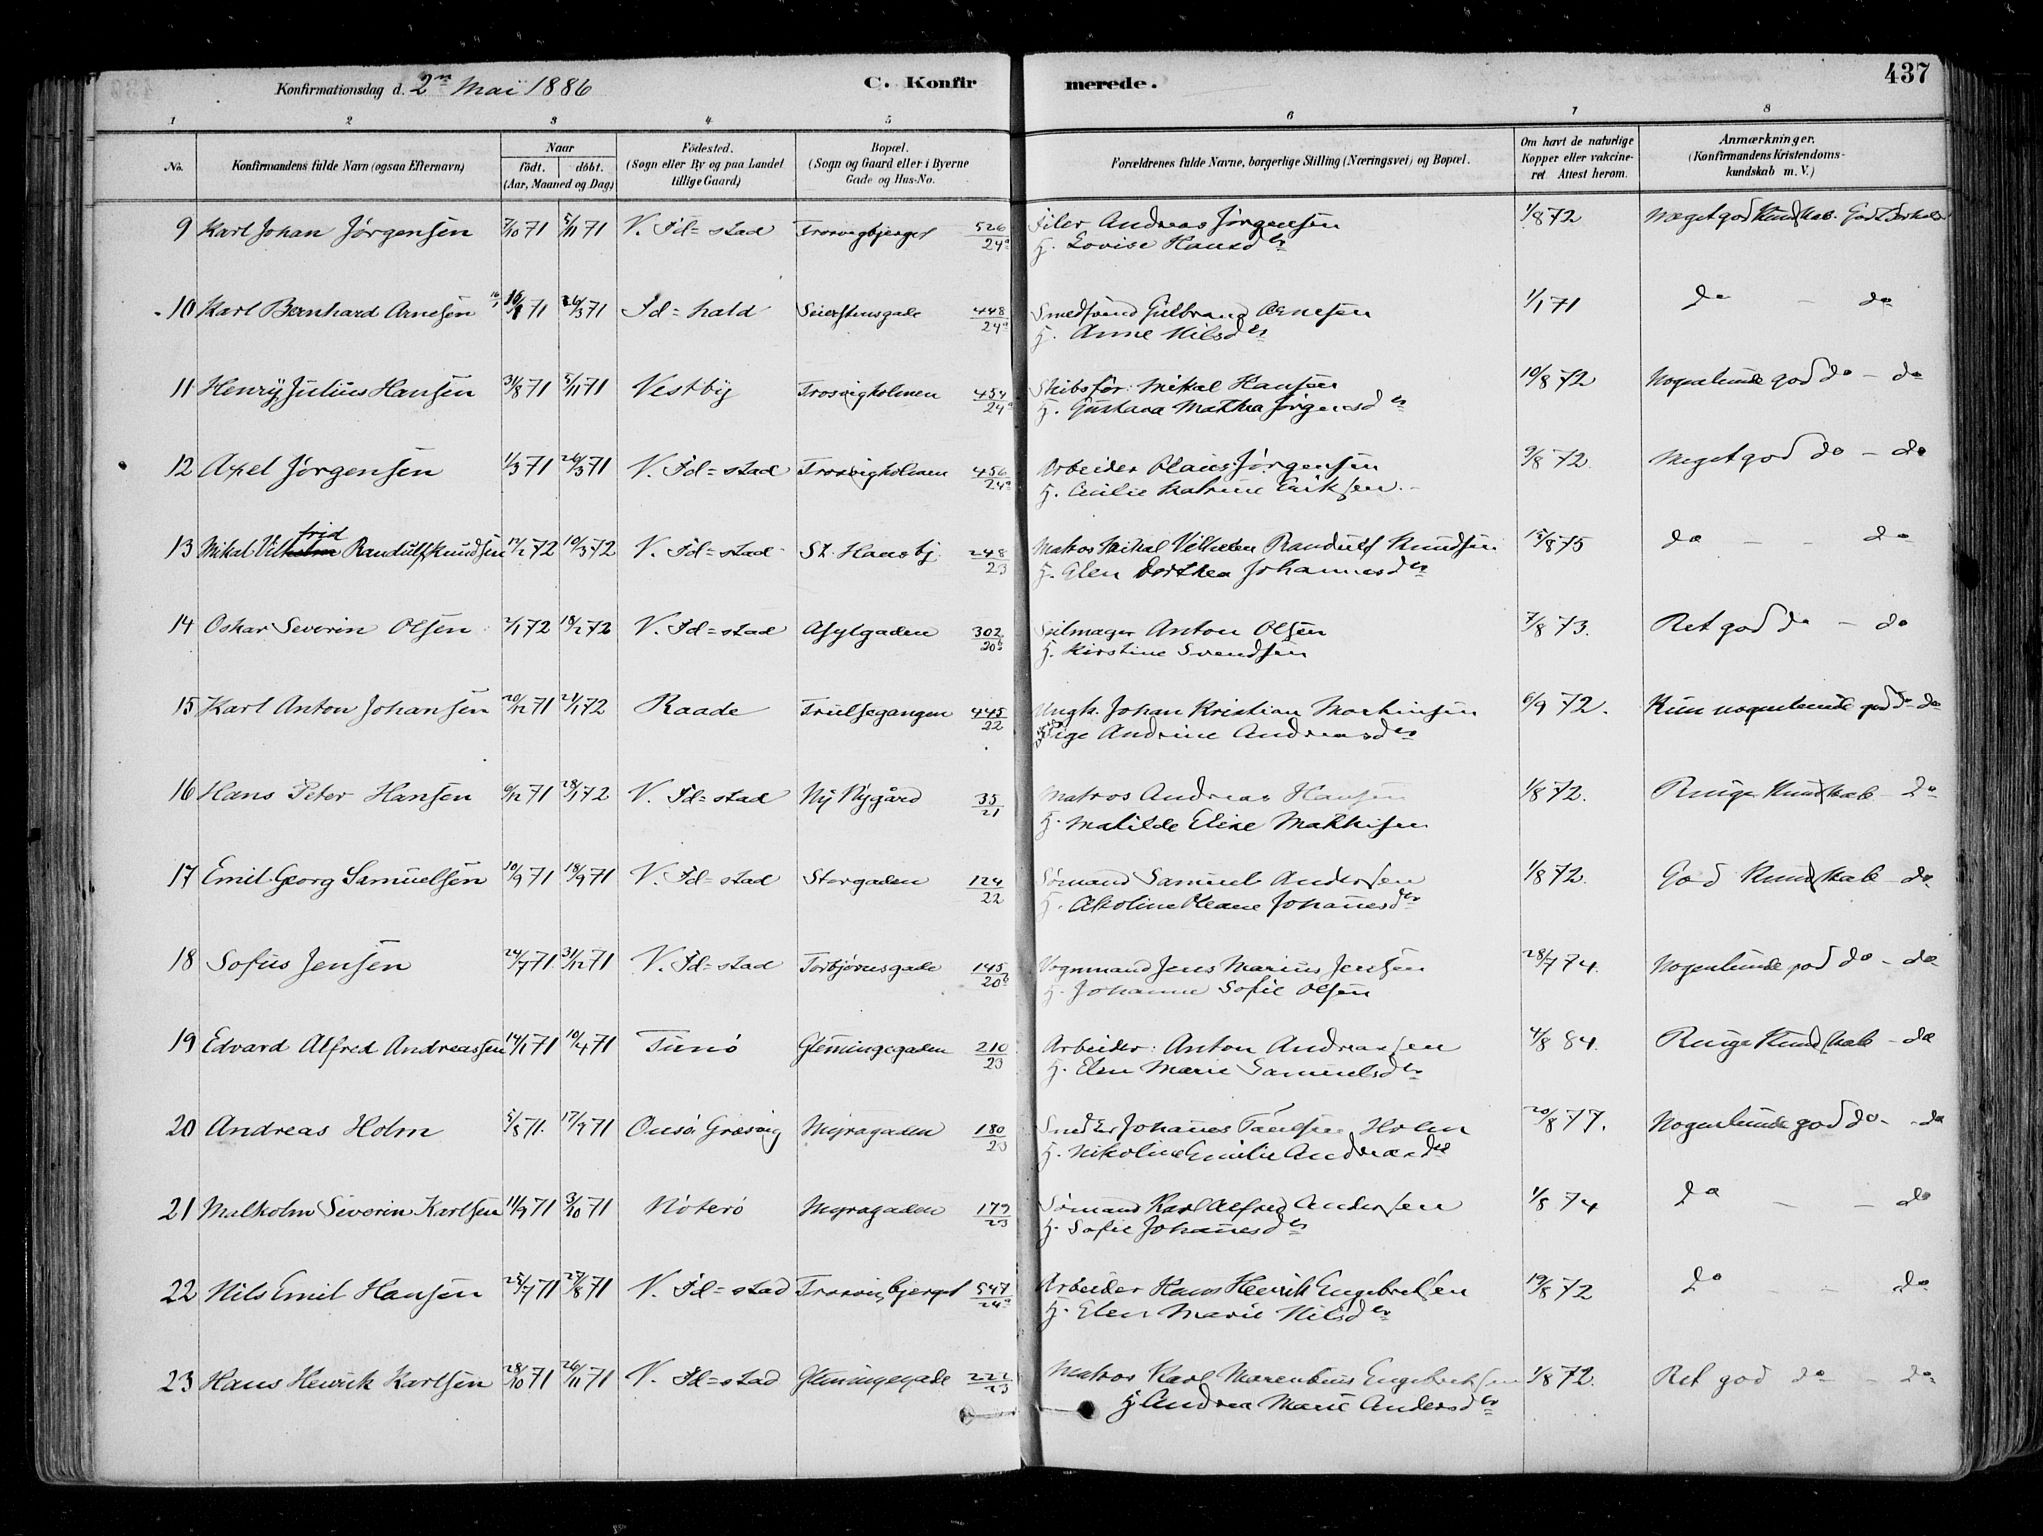 Konfirmationsdag d. 2en Mai 1886 C. Konfirmerede. 437
1 2 3 4 5 6 7 8
No. Konfirmandens fulde Navn (ogsaa Efternavn) Naar født. døbt. (Aar, Maaned og Dag) Fødested. (Sogn eller By og paa Landet tillige Gaard) Bopæl. (Sogn og Gaard eller i Byerne Gade og Hus-No. Forældrenes fulde Navne, borgerlige Stilling (Næringsvei) og Bopæl. Om havt de naturlige Kopper eller vakcineret. Attest herom. Anmærkninger. (Konfirmandens Kristendomskundskab m. V.)
9 Karl Johan Jørgensen 7/10 71 5/11 71 V. Fd=stad Trosvigbjerget 526/24a Filer Andreas Jørgensen 1/8 72 Meget god Kundskab. God Forhold
H. Lovise Hansdtr
10 Karl Bernhard Arnesen 16/1 71 26/3 71 Fd=hald Seierstensgade 448/24a Smedsvend Gulbrand Arnesen 1/1 71 do – do
H. Anne Nilsdtr
11 Henry Julius Hansen 31/8 71 5/11 71 Vestby Trosvigholmen 454/24a Skibsfør. Mikal Hansen 10/8 72 Nogenlunde god do – do
H. Gustava Mathea Jørgensdtr
12 Axel Jørgensen 1/3 71 26/3 71 V. Fd=stad Trosvigholmen 456/24a Arbeider Olaus Jørgensen 9/8 72. Meget god do – do
H. Cecilie Katrine Eriksen.
13 Mikal Vilfrid Randulf Knudsen 17/2 72 10/3 72 V. Fd=stad St. Hansbj. 248/23 Matros Mikal Vilhelm Randulf Knudsen 15/8 75 do – – do
H. Elen Dorthea Johannesdtr
14 Oskar Severin Olsen 2/1 72 18/2 72 V. Fd=stad Asylgaden 302/20b Seilmager Anton Olsen 7/8 73. Ret god do – do
H. Kirstine Svendsen
15 Karl Anton Johansen 20/12 71 21/1 72 Raade Trulsegangen 445/22 Ungk. Johan Kristian Martinsen 6/9 72. Kun nogenlunde god do – do
Pige Andrine Andreasdtr
16 Hans Peter Hansen 6/12 71 28/1 72 V. Fd=stad Ny Nygård 35/21 Matros Andreas Hansen 1/8 72. Ringe Kundskab – do
H. Matilde Elise Mathisen
17 Emil Georg Samuelsen 10/9 71 18/9 71 V. Fd=stad Storgaden 124/22 Sømand Samuel Andersen 1/8 72. God Kundskab – do.
H. Oleane Johanesdtr
18 Sofus Jensen 24/7 71 31/12 71 V. Fd=stad Torbjørnsgade 145/20b Vognmand Jens Marius Jensen 28/7 74. Nogenlunde god do – do
H. Johanne Sofie Olsen
19 Edvard Alfred Andreassen 14/1 71 10/4 71 Tunø Glemmingegaden 210/23 Arbeider: Anton Andreassen 4/8 84. Ringe Kundskab – do
H. Elen Marie Samuelsdtr
20 Andreas Holm 5/8 71. 17/9 71 Onsø Græsvig Myragaden 180/23 Johanes Holm 20/8 77. Nogenlunde god do – do
H. Nikoline Emilie Andreasdtr
21 Malkolm Severin Karlsen 11/9 71 3/10 71 Nøterø Myragaden 179/23 Sømand Karl Alfred Andersen 1/8 74 do – – do
H. Sofie Johanesdtr
22 Nils Emil Hansen 25/7 71 27/8 71 V. Fd=stad Trosvigbjerget 547/24a Arbeider Hans Henrik Engebretsen 19/8 72 do – – do
H. Elen Marie Nilsdtr
23 Hans Henrik Karlsen 28/10 71 26/11 71 V. Fd=stad Glemmingegade 222/23 Matros Karl Marentius Engebretsen 1/8 72. Ret god do – do
H. Andrea Marie Andersdtr